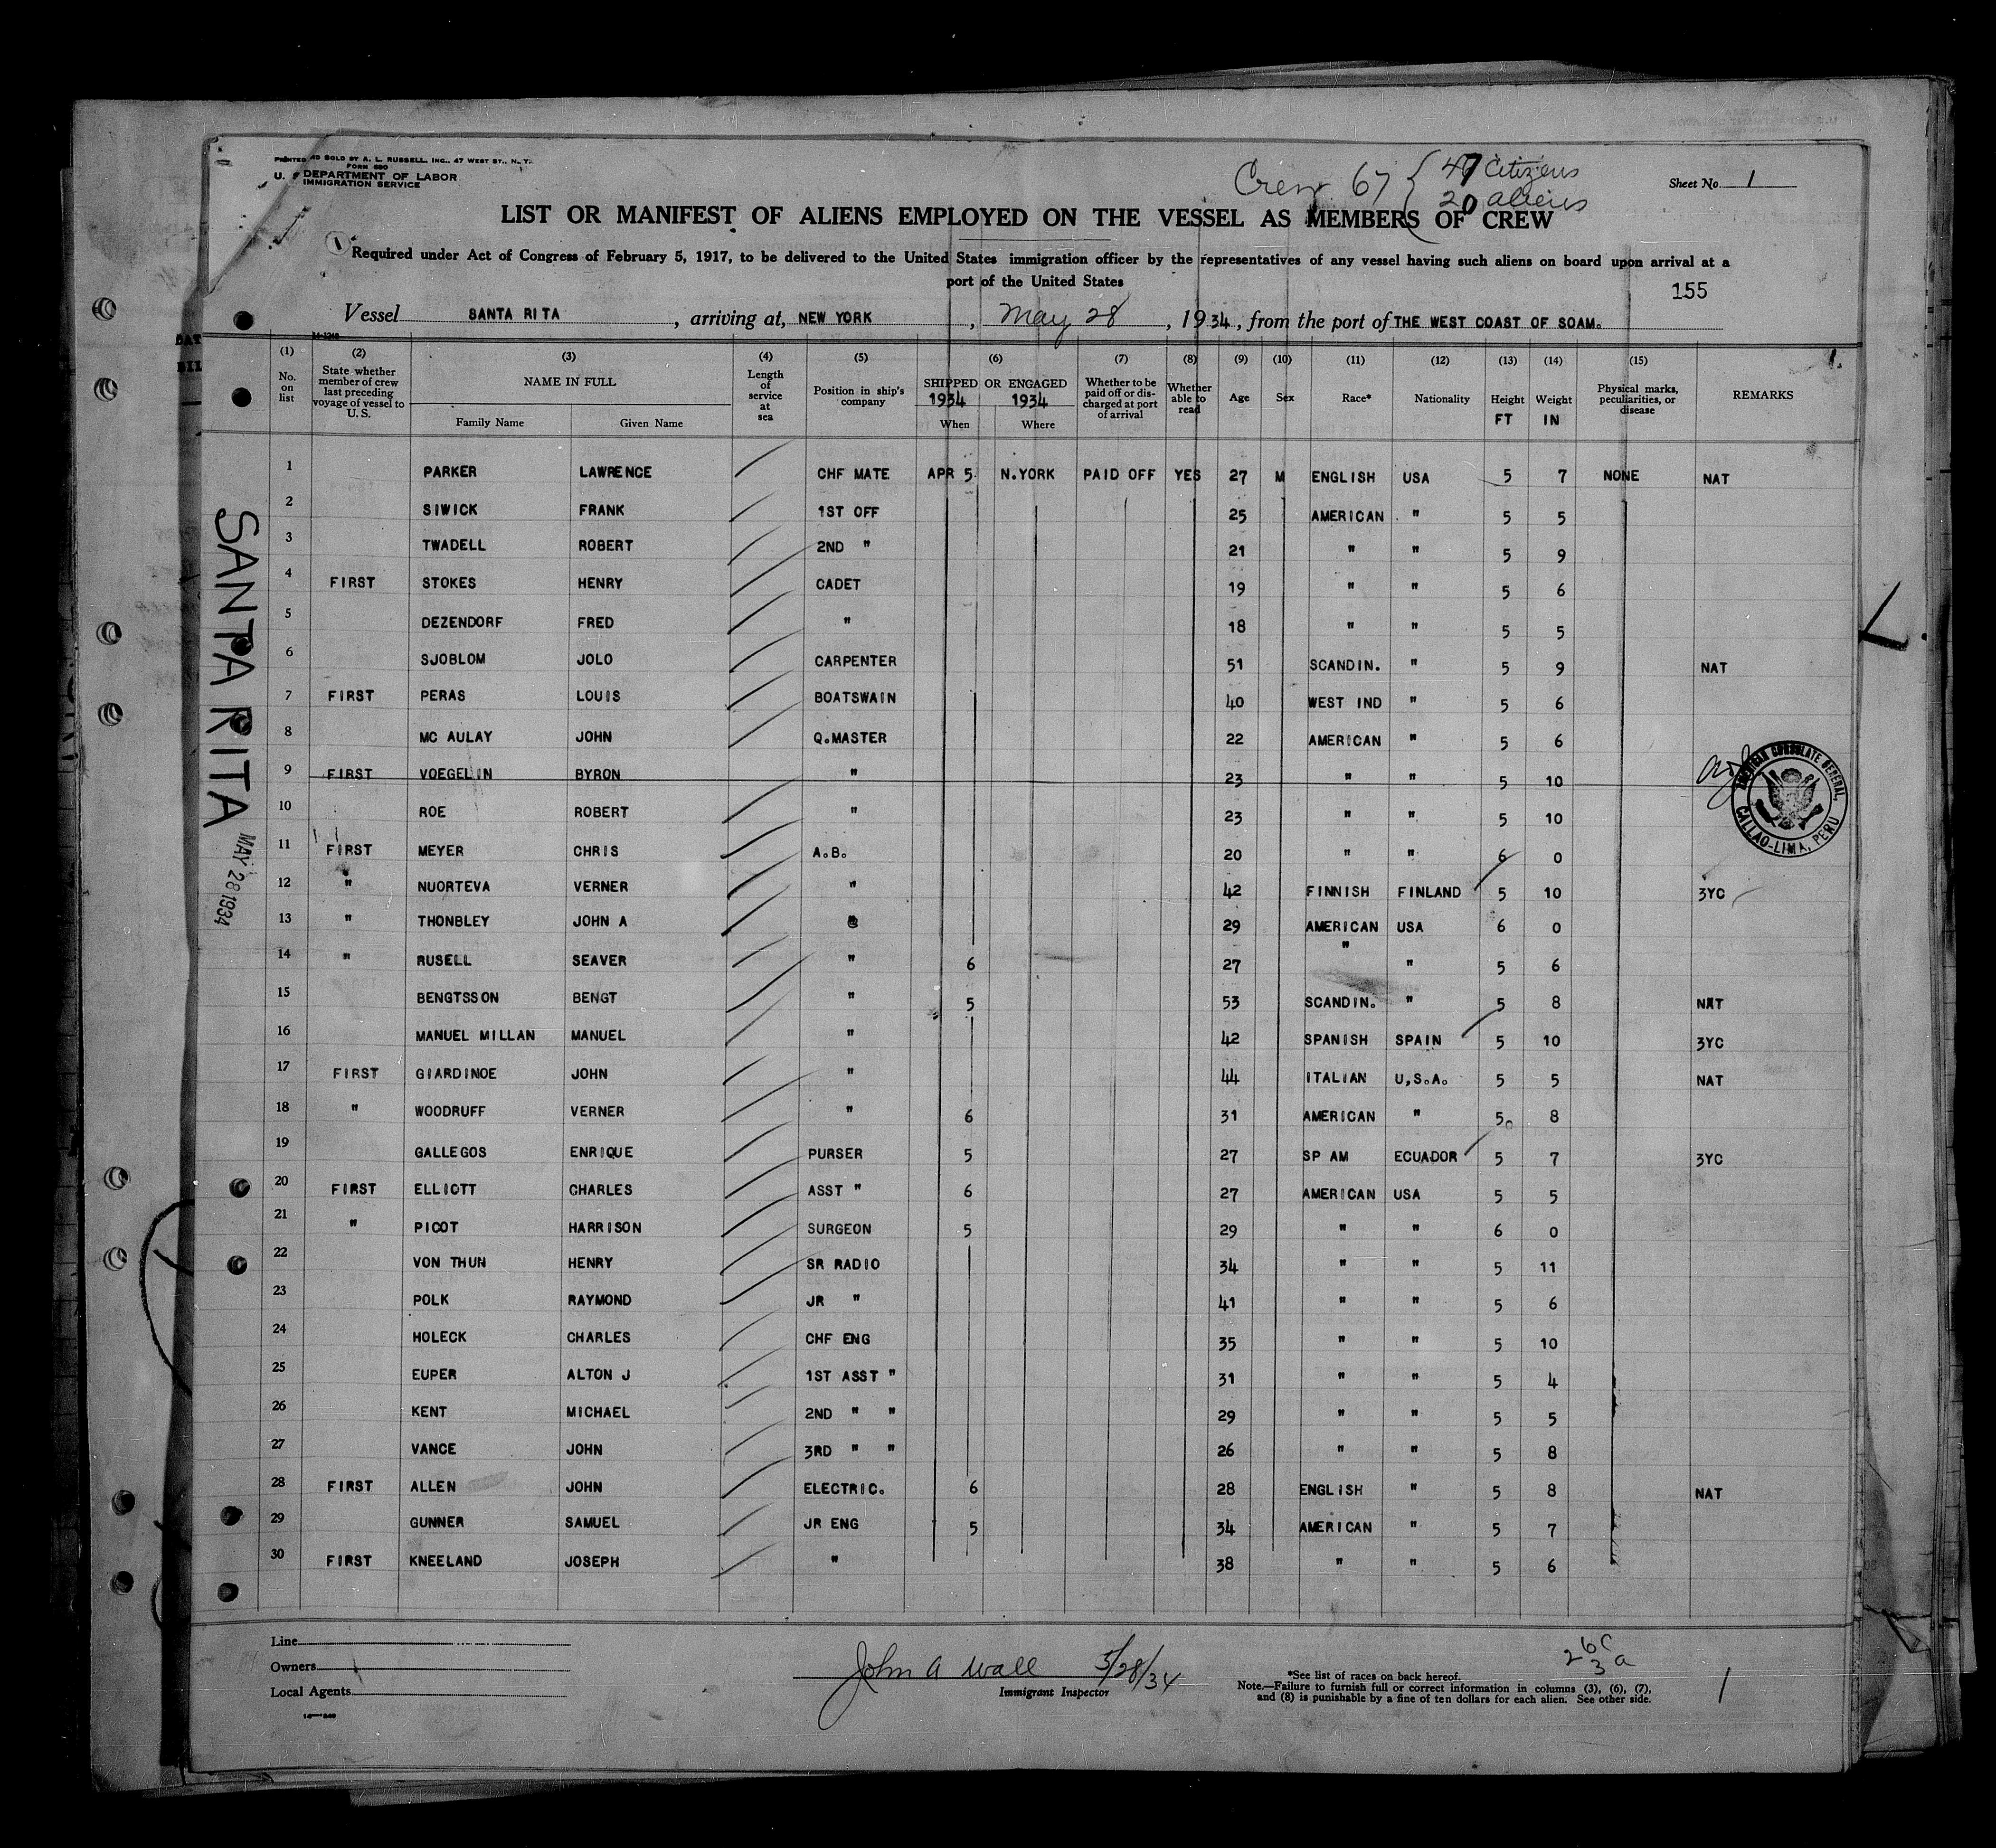 PRINTED AND SOLD BY A. L. RUSSELL, INC., 47 WEST ST., N. Y.
FORM 680
U. S. DEPARTMENT OF LABOR
IMMIGRATION SERVICE
Crew 67 { 47 Citizens
20 aliens
Sheet No. 1
LIST OR MANIFEST OF ALIENS EMPLOYED ON THE VESSEL AS MEMBERS OF CREW
1
Required under Act of Congress of February 5, 1917, to be delivered to the United States immigration officer by the representatives of any vessel having such aliens on board upon arrival at a
port of the United States
155
Vessel SANTA RITA, arriving at, NEW YORK, May 28, 1934, from the port of THE WEST COAST OF SOAM.
(1) (2) (3) (4) (5) (6) (7) (8) (9) (10) (11) (12) (13) (14) (15) 1.
No. on list
State whether member of crew last preceding voyage of vessel to U. S.
NAME IN FULL
Family Name Given Name
Length of service at sea
Position in ship's company
SHIPPED OR ENGAGED
1934 1934
When Where
Whether to be paid off or discharged at port of arrival
Whether able to read
Age
Sex
Race*
Nationality
Height FT
Weight IN
Physical marks, peculiarities, or disease
REMARKS
1 PARKER LAWRENCE CHF MATE APR 5 N.YORK PAID OFF YES 27 M ENGLISH USA 5 7 NONE NAT
2 SIWICK FRANK 1ST OFF 25 AMERICAN " 5 5
3 TWADELL ROBERT 2ND " 21 " " 5 9
4 FIRST STOKES HENRY CADET 19 " " 5 6
5 DEZENDORF FRED " 18 " " 5 5
6 SJOBLOM JOLO CARPENTER 51 SCANDIN. " 5 9 NAT
7 FIRST PERAS LOUIS BOATSWAIN 40 WEST IND " 5 6
8 MC AULAY JOHN Q.MASTER 22 AMERICAN " 5 6
9 FIRST VOEGELIN BYRON " 23 " " 5 10
10 ROE ROBERT " 23 " " 5 10
11 FIRST MEYER CHRIS A.B. 20 " " 6 0
12 " NUORTEVA VERNER " 42 FINNISH FINLAND 5 10 3YC
13 " THONBLEY JOHN A " 29 AMERICAN USA 6 0
14 " RUSELL SEAVER " 6 27 " " 5 6
15 BENGTSSON BENGT " 5 53 SCANDIN. " 5 8 NAT
16 MANUEL MILLAN MANUEL " 42 SPANISH SPAIN 5 10 3YC
17 FIRST GIARDINOE JOHN " 44 ITALIAN U,S.A. 5 5 NAT
18 " WOODRUFF VERNER " 6 31 AMERICAN " 5 8
19 GALLEGOS ENRIQUE PURSER 5 27 SP AM ECUADOR 5 7 3YC
20 FIRST ELLIOTT CHARLES ASST " 6 27 AMERICAN USA 5 5
21 " PICOT HARRISON SURGEON 5 29 " " 6 0
22 VON THUN HENRY SR RADIO 34 " " 5 11
23 POLK RAYMOND JR " 41 " " 5 6
24 HOLECK CHARLES CHF ENG 35 " " 5 10
25 EUPER ALTON J 1ST ASST " 31 " " 5 4
26 KENT MICHAEL 2ND " " 29 " " 5 5
27 VANCE JOHN 3RD " " 26 " " 5 8
28 FIRST ALLEN JOHN ELECTRIC. 6 28 ENGLISH " 5 8 NAT
29 GUNNER SAMUEL JR ENG 5 34 AMERICAN " 5 7
30 FIRST KNEELAND JOSEPH " 38 " " 5 6
SANTA RITA
MAY 28 1934
AMERICAN CONSULATE GENERAL,
CALLAO-LIMA, PERU
Line
Owners
Local Agents
John A Wall 5/28/34
Immigrant Inspector
*See list of races on back hereof.
Note.—Failure to furnish full or correct information in columns (3), (6), (7),
and (8) is punishable by a fine of ten dollars for each alien. See other side.
3 a
1